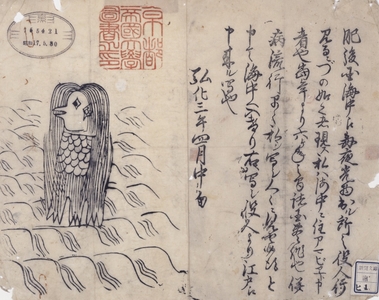 肥後国海中え毎夜光物出ル所之役人行
見るニづの如之者現ス私ハ海中ニ住アマビヱト申
者也當年より六ヶ年之間諸国豊作也併
病流行早々私シ写シ人々ニ見セ候得と
申て海中へ入けり右ハ写シ役人より江戸え
申来ル写也
弘化三年四月中旬
京都
帝國大學
圖書之印